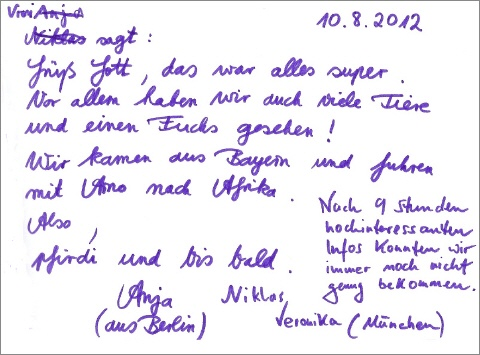 Vroni Anja
10.8.2012
Niklas sagt:
Grüß Gott, das war alles super.
Vor allem haben wir auch viele Tiere
und einen Fuchs gesehen!
Wir kamen aus Bayern und fuhren
mit Arno nach Afrika.
Also,
pfirdi und bis bald.
Nach 9 Stunden
hochinteressanten
Infos konnten wir
immer noch nicht
genug bekommen.
Anja Niklas, Veronika (München)
(aus Berlin)